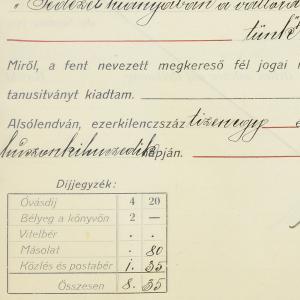 "Fedezet hiányában a váltót
tünt
Miről, a fent nevezett megkereső fél jogai
tanusitványt kiadtam.
Alsólendván, ezerkilenczszáz tizenegy
huszonkilenczedik napján.
Díjjegyzék:
Óvásdíj 4 20
Bélyeg a könyvön 2 —
Vitelbér . .
Másolat . 80
Közlés és postabér 1. 35
Összesen 8. 35